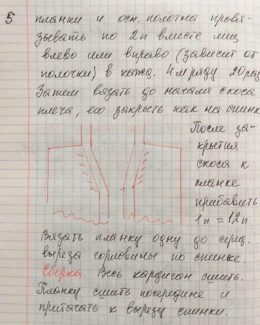 5
планки и осн. полотна провя-
зывать по 2п вместе лиц
влево или вправо (зависит от
полочки) в кажд. 4м ряду 20 раз
Затем вязать до начала скоса
плеча, его закрыть как на спинке
После за-
крытия
скоса к
планке
прибавить
1п = 12п
Вязать планку одну до серед.
выреза горловины по спинке.
Сборка. Весь кардиган сшить.
Планку сшить посередине и
притачать к вырезу спинки.